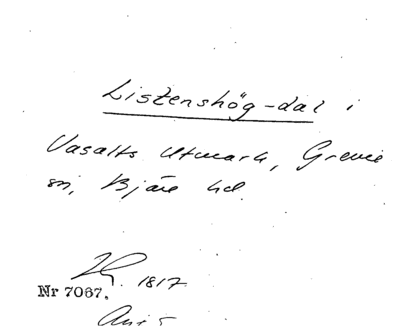 Listenshög-dal i
Vasalts Utmark, Grevie
sn, Bjäre hd.
1817
Nr 7067.